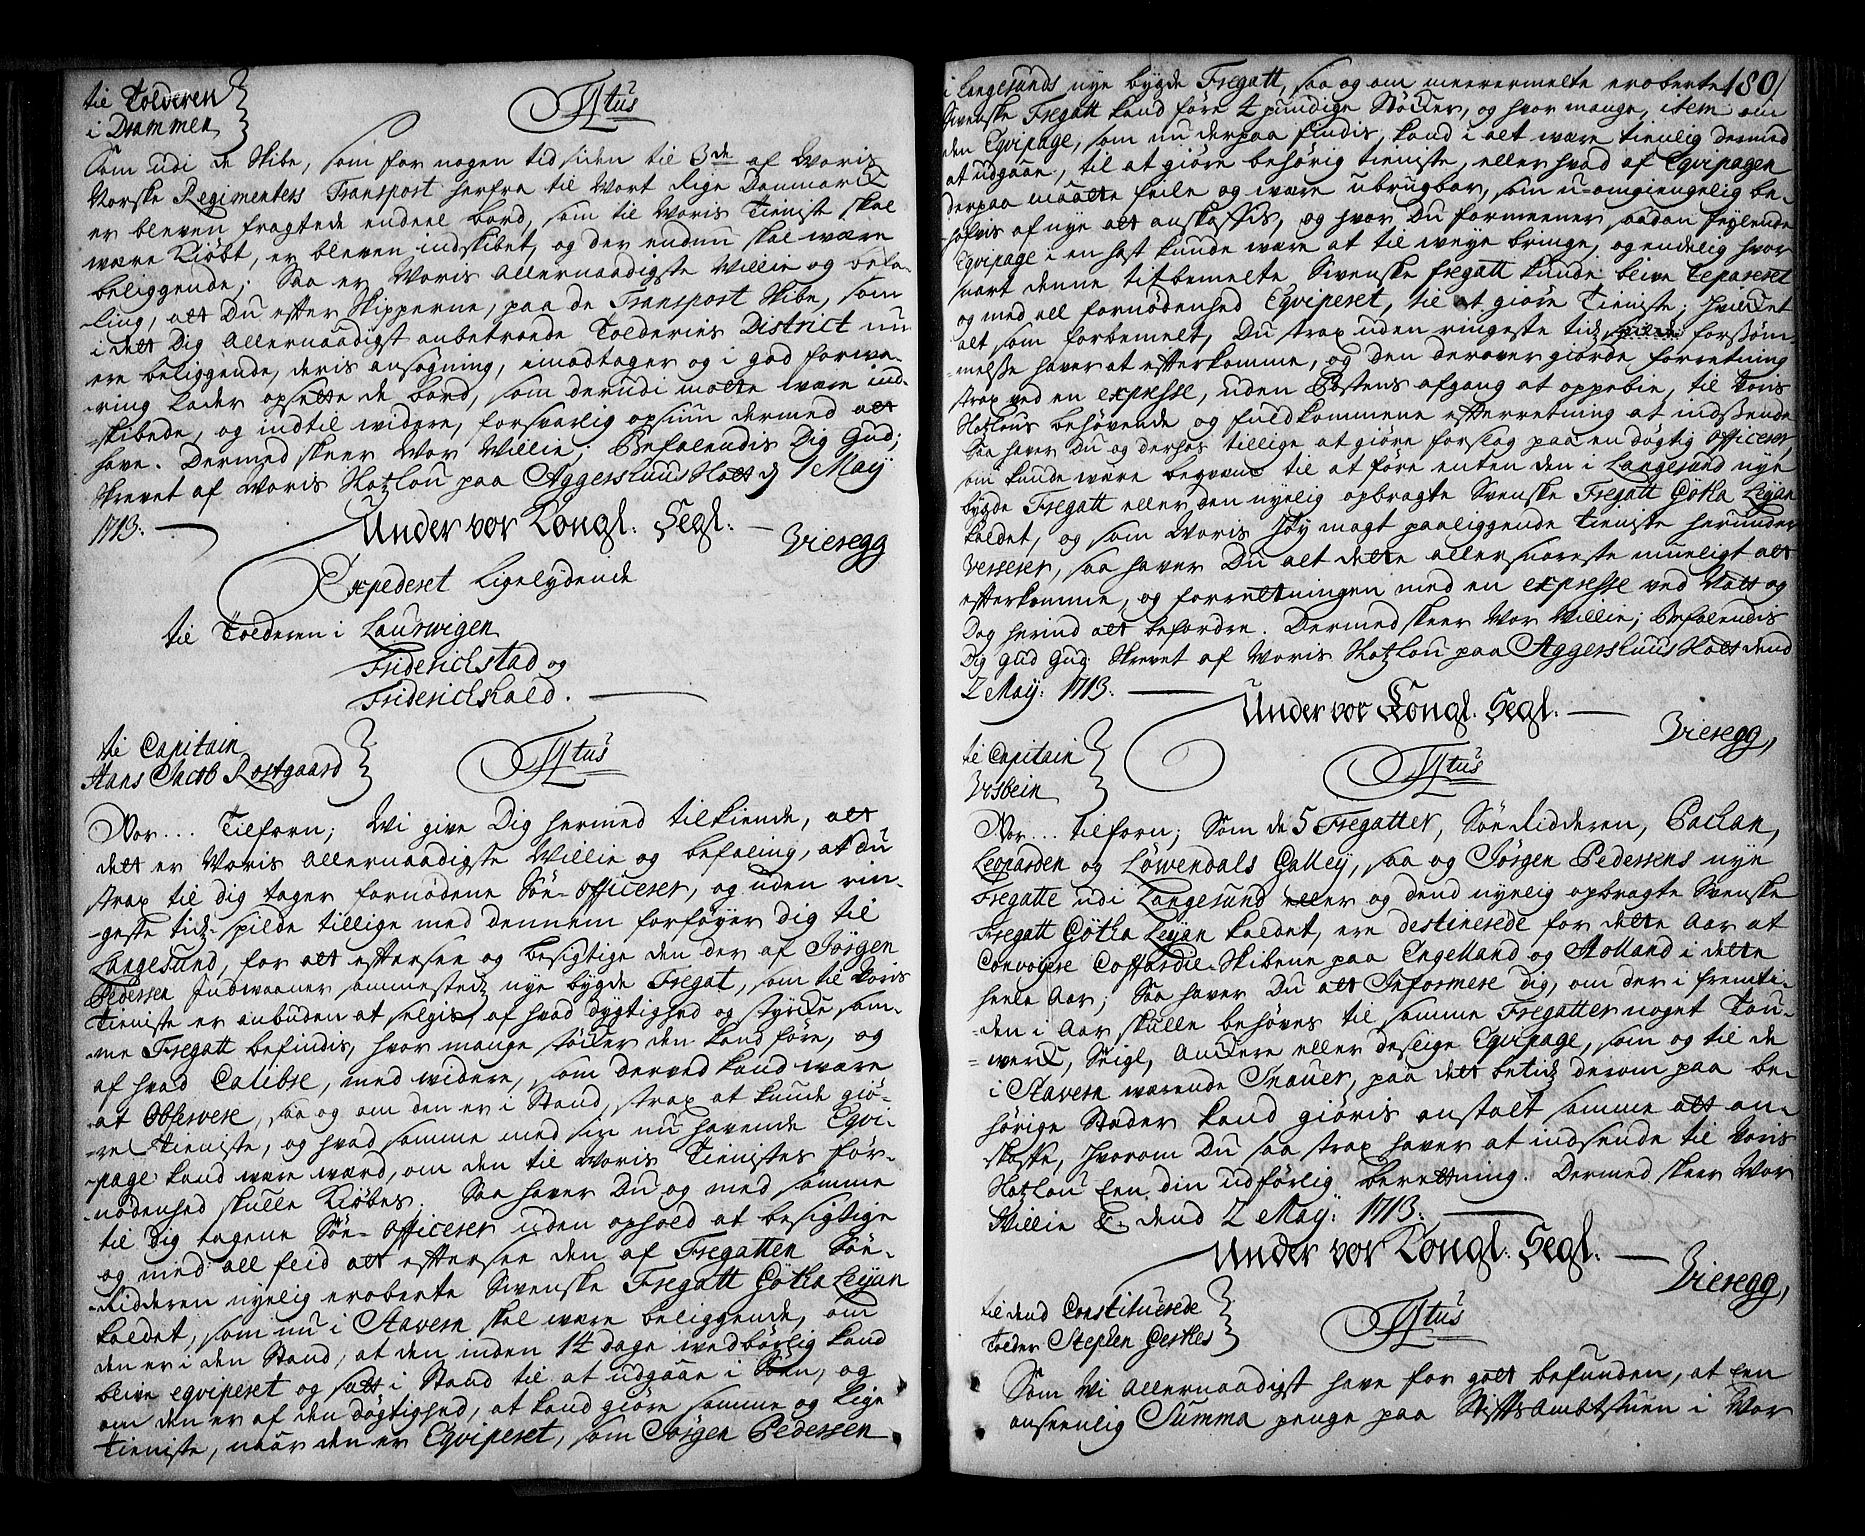 til Tolderen
i Drammen
Ftus
Som udi de Skibe, som for nogen tid siden til 3de af Woris
Norske Regimenters Transport herfra til Wort Rige Danmarck
er bleven fragtede endeel bord, som til Woris Tieniste skal
være Kiøbt, er bleven indskibet, og der endnu skal være
beliggende; Saa er Woris Allernaadigste Willie og befa-
ling, att Du efter Skipperne, paa de Transport Skibe, som
i dett Dig Allernaadigst anbetroede Tolderies District nu
ere beliggende, deris ansøgning, emodtager og i god forva-
ring lader opsette de bord, som derudi motte være ind-
skibede, og indtil widere, forsvarlig opsiun dermed att
have. Dermed skeer Wor Willie, Befalendis Dig Gud;
Skrevet af Woris Slotzlou paa Aggershuus Slott d 1 Maij
1713.
Under vor Kongl. Segl.
Vieregg
Expederet Ligelydende
til Tolderen i Laurwigen
Friderichstad og
Friderichshald.
til Capitain
Hans Jacob Rostgaard
Ftus
Wor... Tilforn; Wi give Dig hermed tilkiende, att
dett er Woris Allernaadigste Willie og befaling, at Du
strax til dig tager fornødene Søe-Officerer, og uden rin-
geste tidz-spilde tillige med dennem forføyer dig til
Langesund, for att eftersee og besigtige den der af Jørgen
Pedersen Indwaaner sammestedz nye bygde Fregat, som til Woris
Tieniste er anbuden at selgis, af hvad dygtighed og styrcke, sam-
me Fregatt befindis, hvor mange støcker den kand føre, og
af hvad Calibre, med widere, som derved kand være
at Observere, saa og om den er i Stand, strax at kunde giø-
re tieniste, og hvad samme med sin nu havende Eqvi-
page kand være værd, om den til Woris Tienistes for-
nødenhed skulle Kiøbes. Saa haver Du og med samme
til dig tagene Søe-Officerer uden ophold at besigtige
og med all fliid att eftersee den af Fregatten Søe-
Ridderen nyelig eroberte Swenske Fregatt Götha Leijan
kaldet, som nu i Stavern skal være beliggende, om
den er i den Stand, at den inden 14 dage uvedbørlig kand
blive eqviperet og satt i Stand til at udgaae i Søen, og
om den er af den døgtighed, at kand giøre samme og Lige
tieniste, naar den er Eqviperet, som Jørgen Pedersen
180
i Langesunds nye bygde Fregatt, saa og om meerermelte eroberte
Swenske Fregatt kand føre 4 pundige Støcker, og hvor mange, item om
den Eqvipage, som nu derpaa findis, kand i alt være tienlig dermed
at udgaae, til at giøre behørig tieniste, eller hvad af Eqvipagen
derpaa maatte feile og være ubrugbar, som u-omgiengelig be-
høfvis af nye att anskaffis, og hvor Du formeener saadan feylende
Eqvipage i en hast kunde være at til weye bringe, og endelig hvor
snart denne titbemelte Swenske fregatt kunde blive Repareret
og med all fornødenhed Eqviperet, til at giøre Tieniste; hvilcket
alt som forbemelt, Du strax uden ringeste tidz forsøm-
melse haver at efterkomme, og den derover giorde forretning
strax ved en expresse, uden Postens afgang at oppebie, til Woris
Slotzlou behøvende og fuldkommene efterretning at indsende
Saa haver Du og derhos tillige at giøre forslag paa en døgtig Officerer,
som kunde være beqvem til at føre enten den i Langesund nye
bygde Fregatt eller den nyelig opbragte Swenske Fregatt Götha Leijan
kaldet, og som Woris høy magt paaliggende tieniste herunder
verserer, saa haver Du alt dette allersnareste mueligt att
efterkomme, og forretningen med en expresse ved Natt og
Dag herind att befordre. Dermed skeer Wor Willie; Befalendis
Dig Gud Gud. Skrevet af Woris Slotzlou paa Aggershuus Slott dend
2 Maij: 1713.
Under vor Kongl. Segl.
Vieregg,
til Capitain
Wisbein
Ftus
Wor... tilforn; Som de 5 Fregatter, Søe-Ridderen, Packan,
Leoparden og Løwendals Galley, saa og Jørgen Pedersens nye
Fregatte udi Langesund eller og dend nyelig opbragte Swenske
Fregatt Götha Leijan kaldet, ere destinerede for dette Aar at
Convoijere Coffardie-Skibene paa Engelland og Holland i dette
heele Aar; Saa haver Du att Informere dig, om der i fremti-
den i Aar skulle behøves til samme Fregatter noget Tou-
werck, Seigl, Anckere eller deslige Eqvipage, som og til de
i Stavern værende Snauer, paa dett betids derom paa be-
hørige Stæder kand giøris anstalt samme att an-
skaffe, hvorom Du saa strax haver at indsende til Woris
Slotzlou Een din udførlig berettning. Dermed skeer Wor
Willie &. dend 2 Maij: 1713.
Under vor Kongl. Segl.
Vieregg,
til dend Constituerede
Tolder Stephen Gerkes
Ftus
Som Wi Allernaadigst have for gott befunden, at Een
anseenlig Summa penge paa Stiftsambtstuen i Wor